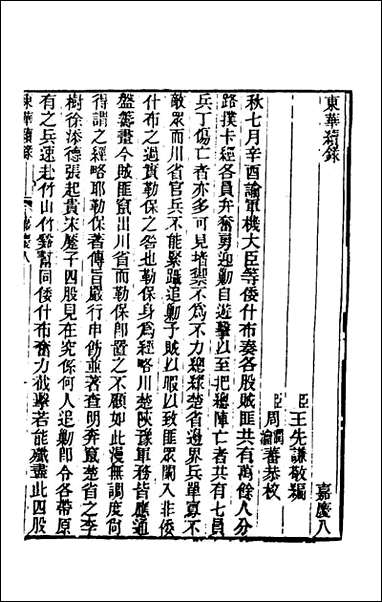 東華續錄
嘉慶八
臣王先謙敬編
臣周潤蕃恭校
周瀹蕃恭校
秋七月辛酉諭軍機大臣等倭什布奏各股賊匪共有萬餘人分
路撲卡經各員弁奮勇迎勦自遊擊以至把總陣亡者共有七員
兵丁傷亡者亦多可見堵禦不爲不力總緣楚省邊界兵單寡不
敵眾而川省官兵不能緊躡追勦予賊以暇以致匪眾闌入非倭
什布之過實勒保之咎也勒保身爲經略川楚陝豫軍務皆應通
盤籌畫今賊匪竄出川省而勒保卽置之不顧如此漫無調度何
得謂之經略耶勒保著傳旨嚴行申飭並著查明奔竄楚省之李
樹徐添德張起貴宋麽子四股見在究係何人追勦卽令各帶原
有之兵速赴竹山竹谿幫同倭什布奮力截擊若能殲盡此四股
東華續錄
嘉慶八